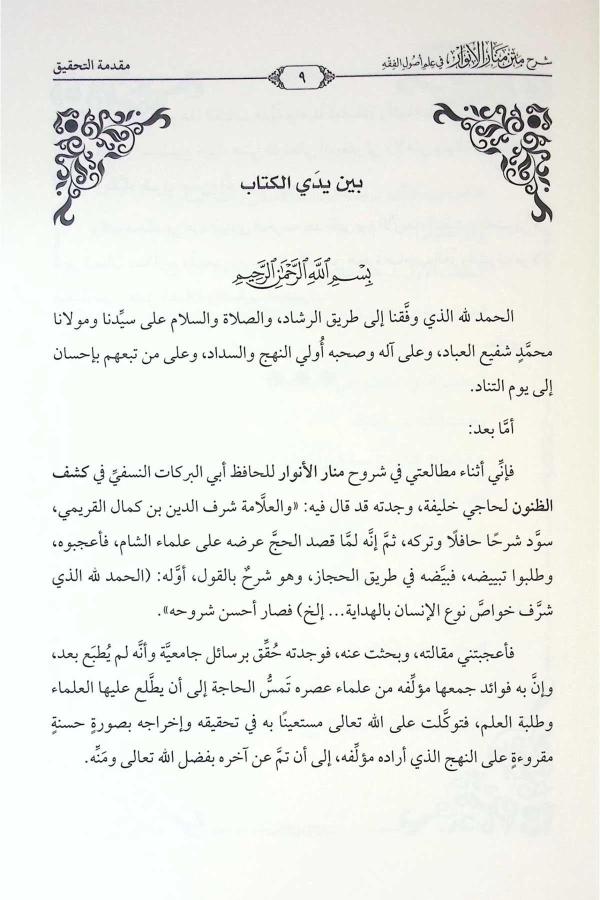 شرح متن منار الأنوار في علم أصول الفقه
٩
مقدمة التحقيق
بين يدَي الكتاب
بِسْمِ اللَّهِ الرَّحْمَٰنِ الرَّحِيمِ
الحمد لله الذي وفَّقنا إلى طريق الرشاد، والصلاة والسلام على سيِّدنا ومولانا
محمَّدٍ شفيع العباد، وعلى آله وصحبه أُولي النهج والسداد، وعلى من تبعهم بإحسان
إلى يوم التناد.
أمَّا بعد:
فإنِّي أثناء مطالعتي في شروح منار الأنوار للحافظ أبي البركات النسفيّ في كشف
الظنون لحاجي خليفة، وجدته قد قال فيه: «والعلَّامة شرف الدين بن كمال القريمي،
سوَّد شرحًا حافلًا وتركه، ثمَّ إنَّه لمَّا قصد الحجَّ عرضه على علماء الشام، فأعجبوه،
وطلبوا تبييضه، فبيَّضه في طريق الحجاز، وهو شرحٌ بالقول، أوَّله: (الحمد لله الذي
شرَّف خواصَّ نوع الإنسان بالهداية... إلخ) فصار أحسن شروحه».
فأعجبتني مقالته، وبحثت عنه، فوجدته حُقِّق برسائل جامعيَّة وأنَّه لم يُطبَع بعد،
وإنَّ به فوائد جمعها مؤلِّفه من علماء عصره تَمسُّ الحاجة إلى أن يطَّلع عليها العلماء
وطلبة العلم، فتوكَّلت على الله تعالى مستعينًا به في تحقيقه وإخراجه بصورةٍ حسنةٍ
مقروءةٍ على النهج الذي أراده مؤلِّفه، إلى أن تمَّ عن آخره بفضل الله تعالى ومَنِّه.